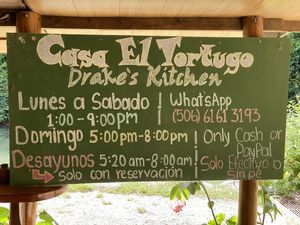 Casa El Tortugo
Drake's Kitchen
Lunes a Sabado
1:00-9:00pm
Domingo 5:00pm-8:00pm
Desayunos 5:20am-8:00am
Solo con reservación
WhatsApp
(506) 6161 3193
Only Cash or
PayPal
Solo Efectivo o
sinpe